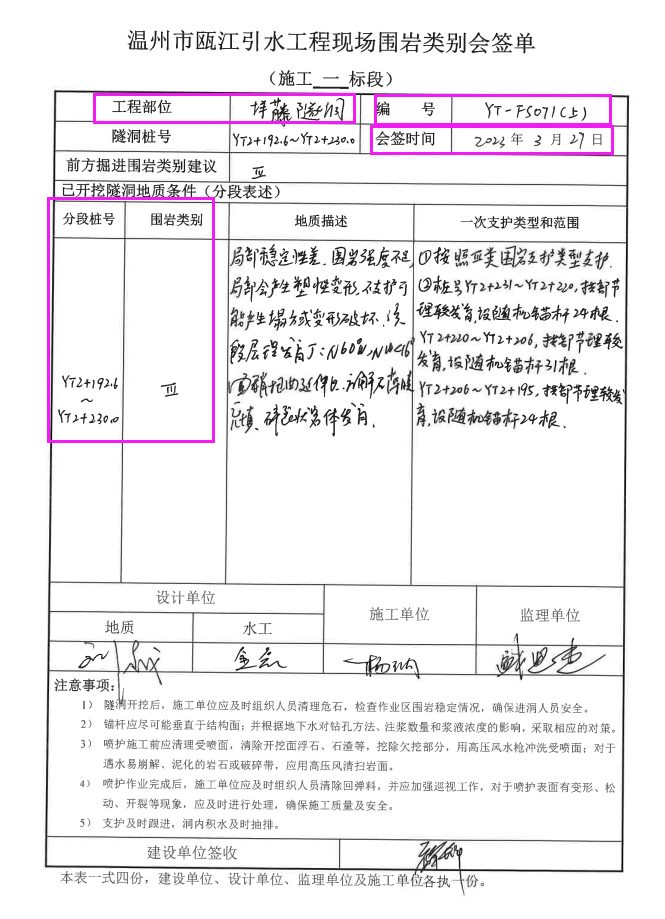 温州市瓯江引水工程现场围岩类别会签单
（施工 一 标段）
工程部位 坪藤隧洞 编 号 YT-FS071(上)
隧洞桩号 YT2+192.6~YT2+230.0 会签时间 2023 年 3 月 27 日
前方掘进围岩类别建议 Ⅲ
已开挖隧洞地质条件（分段表述）
分段桩号 围岩类别 地质描述 一次支护类型和范围
YT2+192.6
~
YT2+230.0
Ⅲ
局部稳定性差，围岩强度不足，
局部会产生塑性变形，不支护可
能产生塌方或变形破坏.
充填、碎裂状岩体发育.
①按照Ⅲ类围岩支护类型支护.
②桩号YT2+231~YT2+220，拱部节
理较发育，设随机锚杆24根.
YT2+220~YT2+206，拱部节理较
发育，设随机锚杆31根.
YT2+206~YT2+195，拱部节理较发
育，设随机锚杆24根.
设计单位 施工单位 监理单位
地质 水工
注意事项：
1） 隧洞开挖后，施工单位应及时组织人员清理危石，检查作业区围岩稳定情况，确保进洞人员安全。
2） 锚杆应尽可能垂直于结构面；并根据地下水对钻孔方法、注浆数量和浆液浓度的影响，采取相应的对策。
3） 喷护施工前应清理受喷面，清除开挖面浮石、石渣等，挖除欠挖部分，用高压风水枪冲洗受喷面；对于
遇水易崩解、泥化的岩石或破碎带，应用高压风清扫岩面。
4） 喷护作业完成后，施工单位应及时组织人员清除回弹料，并应加强巡视工作，对于喷护表面有变形、松
动、开裂等现象，应及时进行处理，确保施工质量及安全。
5） 支护及时跟进，洞内积水及时抽排。
建设单位签收
本表一式四份，建设单位、设计单位、监理单位及施工单位各执一份。